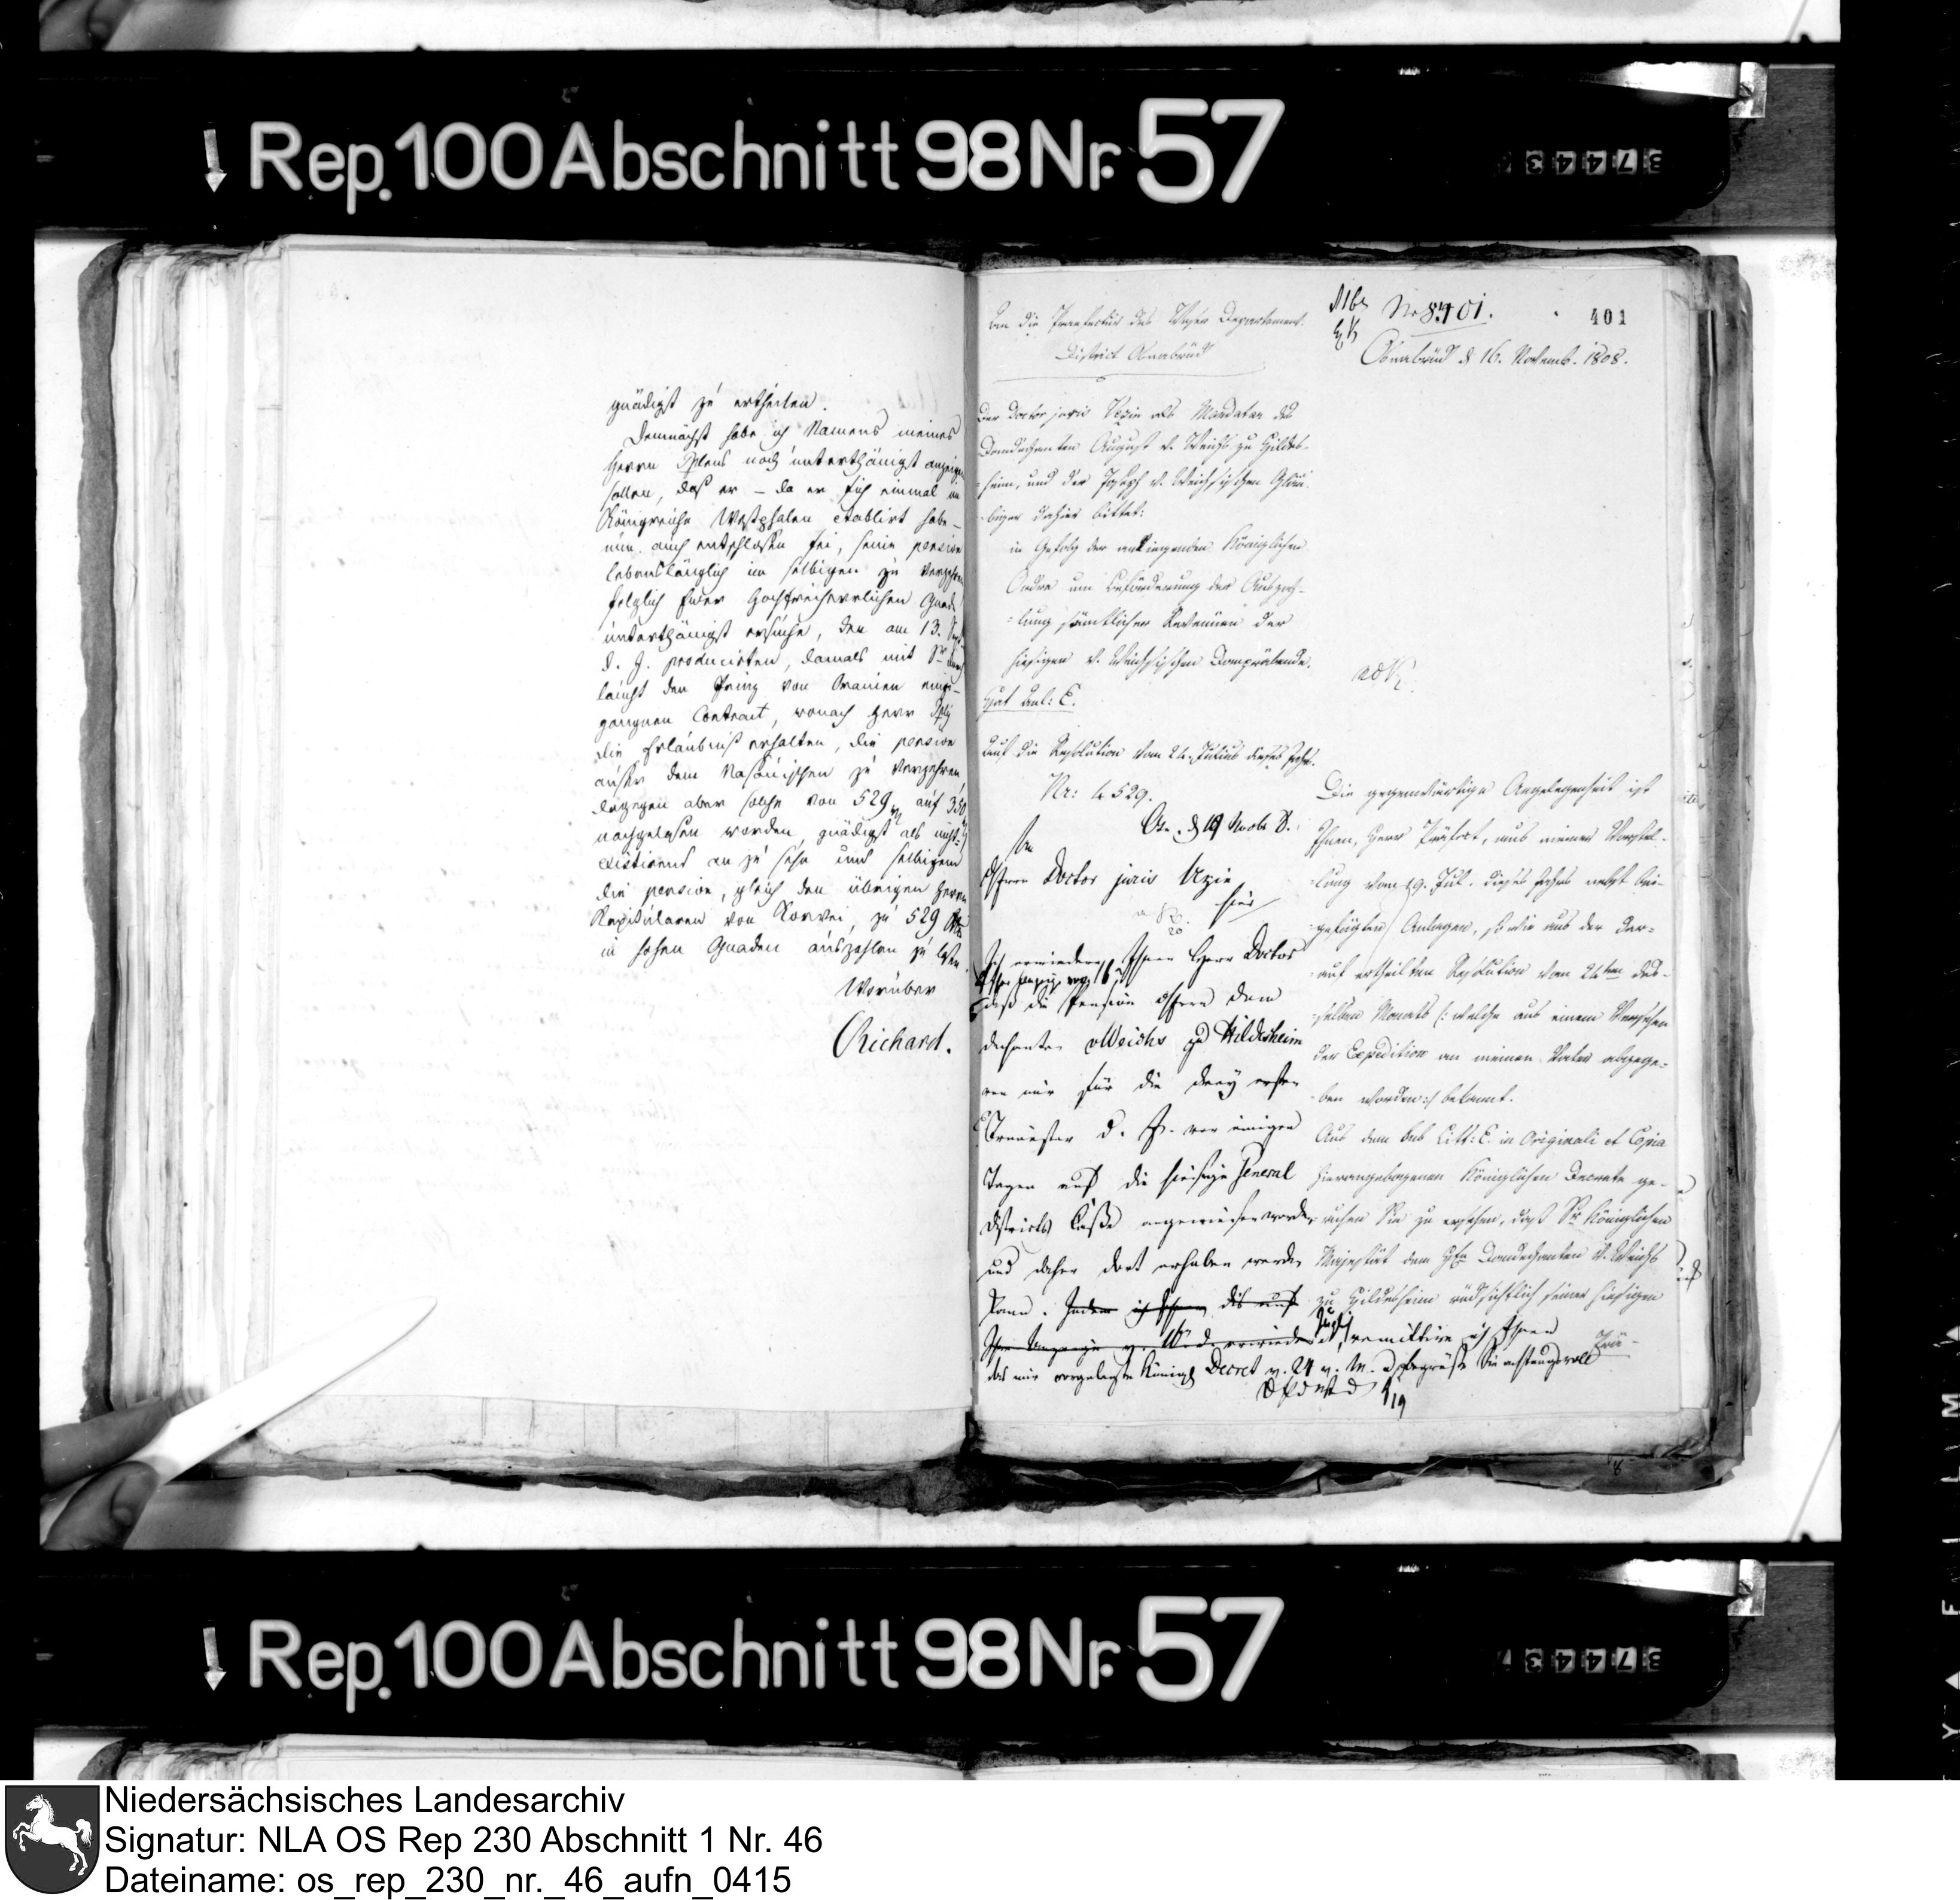 Rep. 100 Abschnitt 98 Nr. 57
gnädigst zu ertheilen.
Demnächst habe ich Namens meines
Herrn noch unterthänigst anzeigen
sollen, daß er – da er sich einmal im
Königreiche Westphalen etablirt habe –
nun auch entschlossen sei, seine pension
lebenslänglich in selbigem zu verzehren
folglich Euer Hochfreiherrlichen Gnaden
unterthänigst ersuche, den am 13.
d. J. producirten, damals mit Sr
laucht dem Prinz von Oranien einge-
gangnen Contract, wonach Herr
die Erlaubniß erhalten, die pension
außer dem Nassauischen zu verzehren,
dagegen aber solche von 529 auf 350
nachgelassen worden, gnädigst als nicht
existirend an zu sehn und selbigem
die pension, gleich den übrigen Herrn
Kapitularen von Korvei, zu 529
in hohen Gnaden auszahlen zu lassen.
Worüber
Richard.
An die Praefectur des Weser Departement.
District Osnabrück
No 8401.
401
Osnabrück d 16. Novemb. 1808.
Der Doctor juris Vezin als Mandatar des
Domdechanten August v. Weichs zu Hildes-
heim, und der Joseph v. Weichsischen Gläu-
biger dahier bittet:
in Gefolg der anliegenden Königlichen
Ordre um Beförderung der Auszah-
lung sämtlicher Revenüen der
hiesigen v. Weichsischen Dompräbende.
Hat Anl: C.
Auf die Resolution vom 24. Julius dieses Jahrs.
Nr: 4529.
Osn. d 19 Novbr 8.
An
Herrn Doctor juris Vezin
hier
Ich erwiedere Ihnen Herr Doctor
daß die Pension Herrn Dom
dechanten v Weichs zu Hildesheim
von mir für die drey ersten
Trimester d. J. vor einigen
Tagen auf die hiesige General
Districts Casse angewiesen worden
und daher dort erhoben werden
kann. Indem ich Ihnen dies auf
remittire ich Ihnen
das mir vorgelegte Königl Decret v. 24 v. M. u begrüße Sie achtungsvoll
19
Die gegenwärtige Angelegenheit ist
Ihnen, Herr Präfect, aus meiner Vorstel-
lung vom 19. Jul. dieses Jahrs nebst bei-
gefügten Anlagen, so wie aus der dar-
auf ertheilten Resolution vom 24ten des-
selben Monats (: welche aus einem Versehen
der Expedition an meinen Vater abgege-
ben worden :) bekannt.
Aus dem sub Litt: C. in Originali et Copia
hierangebogenen Königlichen Decrete ge-
ruhen Sie zu ersehen, daß Sr Königlichen
Majestät dem Hrn Domdechanten v. Weichs
zu Hildesheim rücksichtlich seiner hiesigen
Prä-
Rep. 100 Abschnitt 98 Nr. 57
Niedersächsisches Landesarchiv
Signatur: NLA OS Rep 230 Abschnitt 1 Nr. 46
Dateiname: os_rep_230_nr._46_aufn_0415